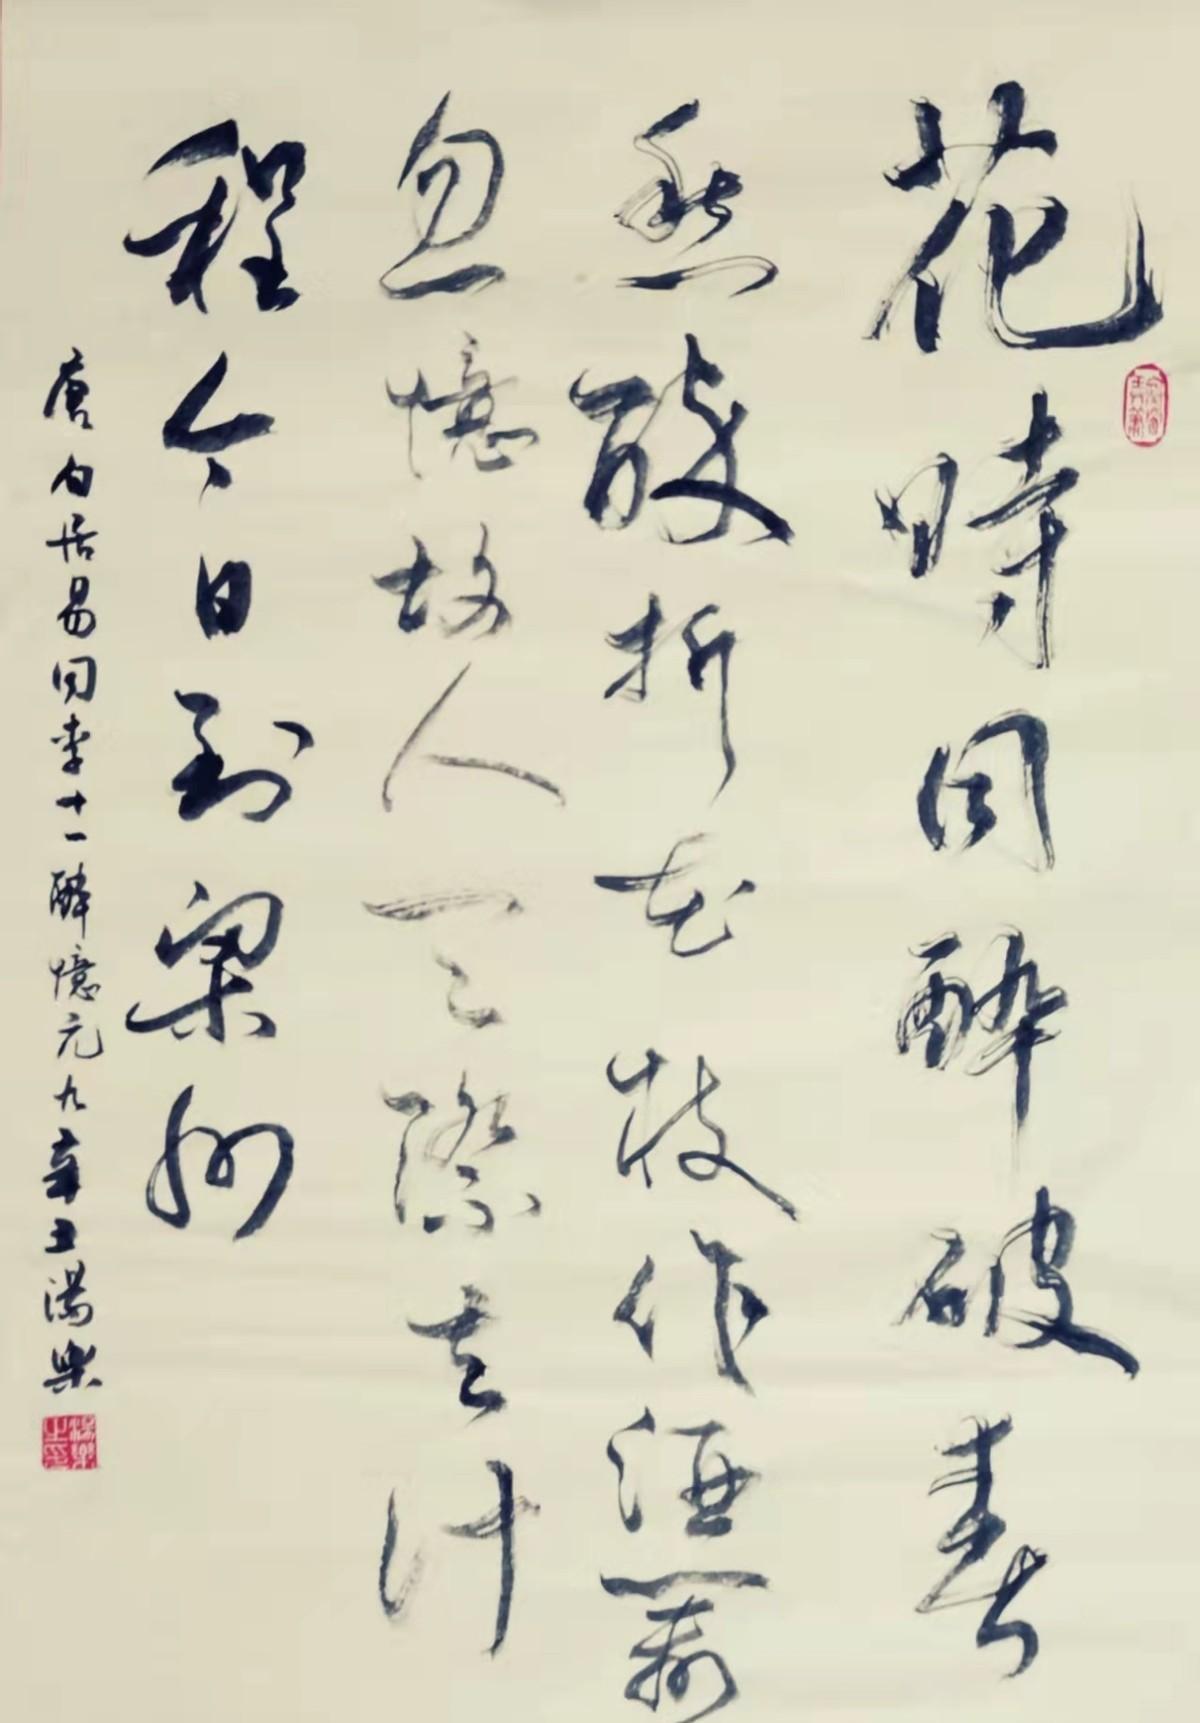 花時同醉破春
愁醉折花枝作酒籌
忽憶故人天際去計
程今日到梁州
唐白居易同李十一醉憶元九辛丑湯樂
湯樂之印